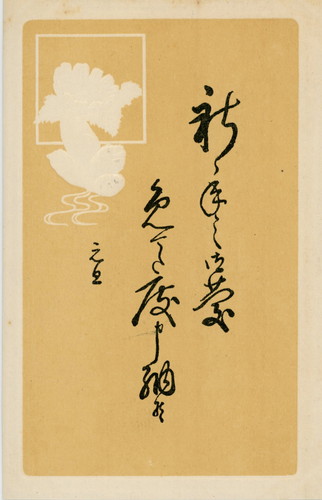 新年之御慶
免て度申納候
元旦